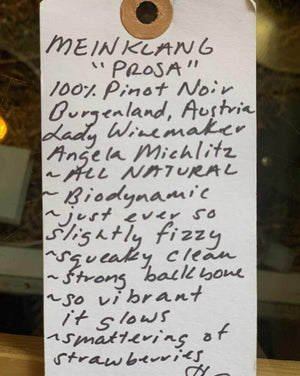 MEINKLANG
"PROSA"
100% Pinot Noir
Burgenland, Austria
Lady Winemaker
Angela Michlitz
~ ALL NATURAL
~ Biodynamic
~ just ever so
slightly fizzy
~ squeaky clean
~ strong backbone
~ so vibrant
it glows
~ smattering of
strawberries